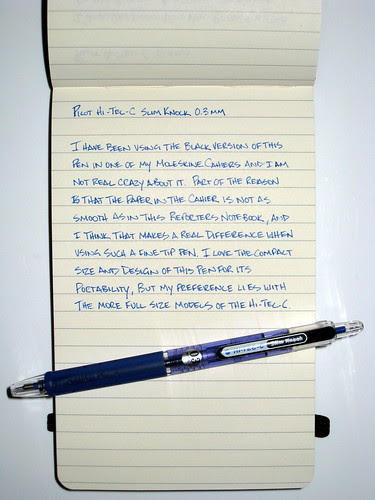 Pilot Hi-Tec-C Slim Knock 0.3mm
I have been using the black version of this
pen in one of my Moleskine Cahiers and I am
not real crazy about it. Part of the reason
is that the paper in the Cahier is not as
smooth as in this Reporters Notebook, and
I think that makes a real difference when
using such a fine tip pen. I love the compact
size and design of this pen for its
portability, but my preference lies with
the more full size models of the Hi-Tec-C.
HI-TEC-C Slim Knock